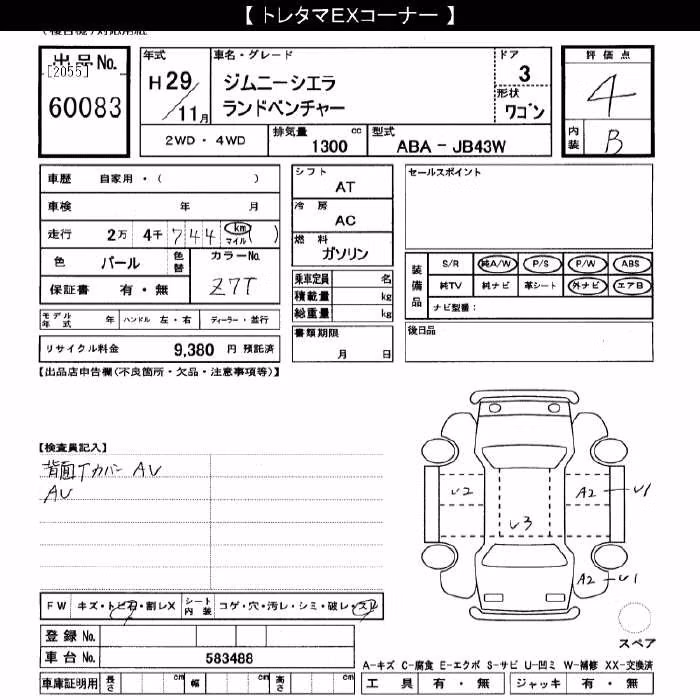 【 トレタマEXコーナー 】
出品No.
[2055]
60083
年式
H29/11月
車名・グレード
ジムニーシエラ
ランドベンチャー
ドア
3
形状
ワゴン
評価点
4
内装
B
2WD・4WD
排気量 cc
1300
型式
ABA - JB43W
車歴 自家用・( )
車検 年 月
走行 2万 4千 744 km マイル )
色 パール 色替
カラーNo.
Z7T
保証書 有・無
モデル年式 年 ハンドル 左・右 ディーラー・並行
リサイクル料金 9,380 円 預託済
シフト
AT
冷房
AC
燃料
ガソリン
乗車定員 名
積載量 kg
総重量 kg
書類期限
月 日
セールスポイント
装備品
S/R 純A/W P/S P/W ABS
純TV 純ナビ 革シート 外ナビ エアB
ナビ型番:
後日品
【出品店申告欄(不良箇所・欠品・注意事項等)】
【検査員記入】
背面Tカバー AU
AU
U2
A2 U1
U3
A2 U1
FW キズ・トビ石・割レX シート内装 コゲ・穴・汚レ・シミ・破レ・スレ
登録 No.
車台 No. 583488
車庫証明用 長さ cm 幅 cm 高さ cm
スペア
A-キズ C-腐食 E-エクボ S-サビ U-凹ミ W-補修 XX-交換済
工具 有・無 ジャッキ 有・無